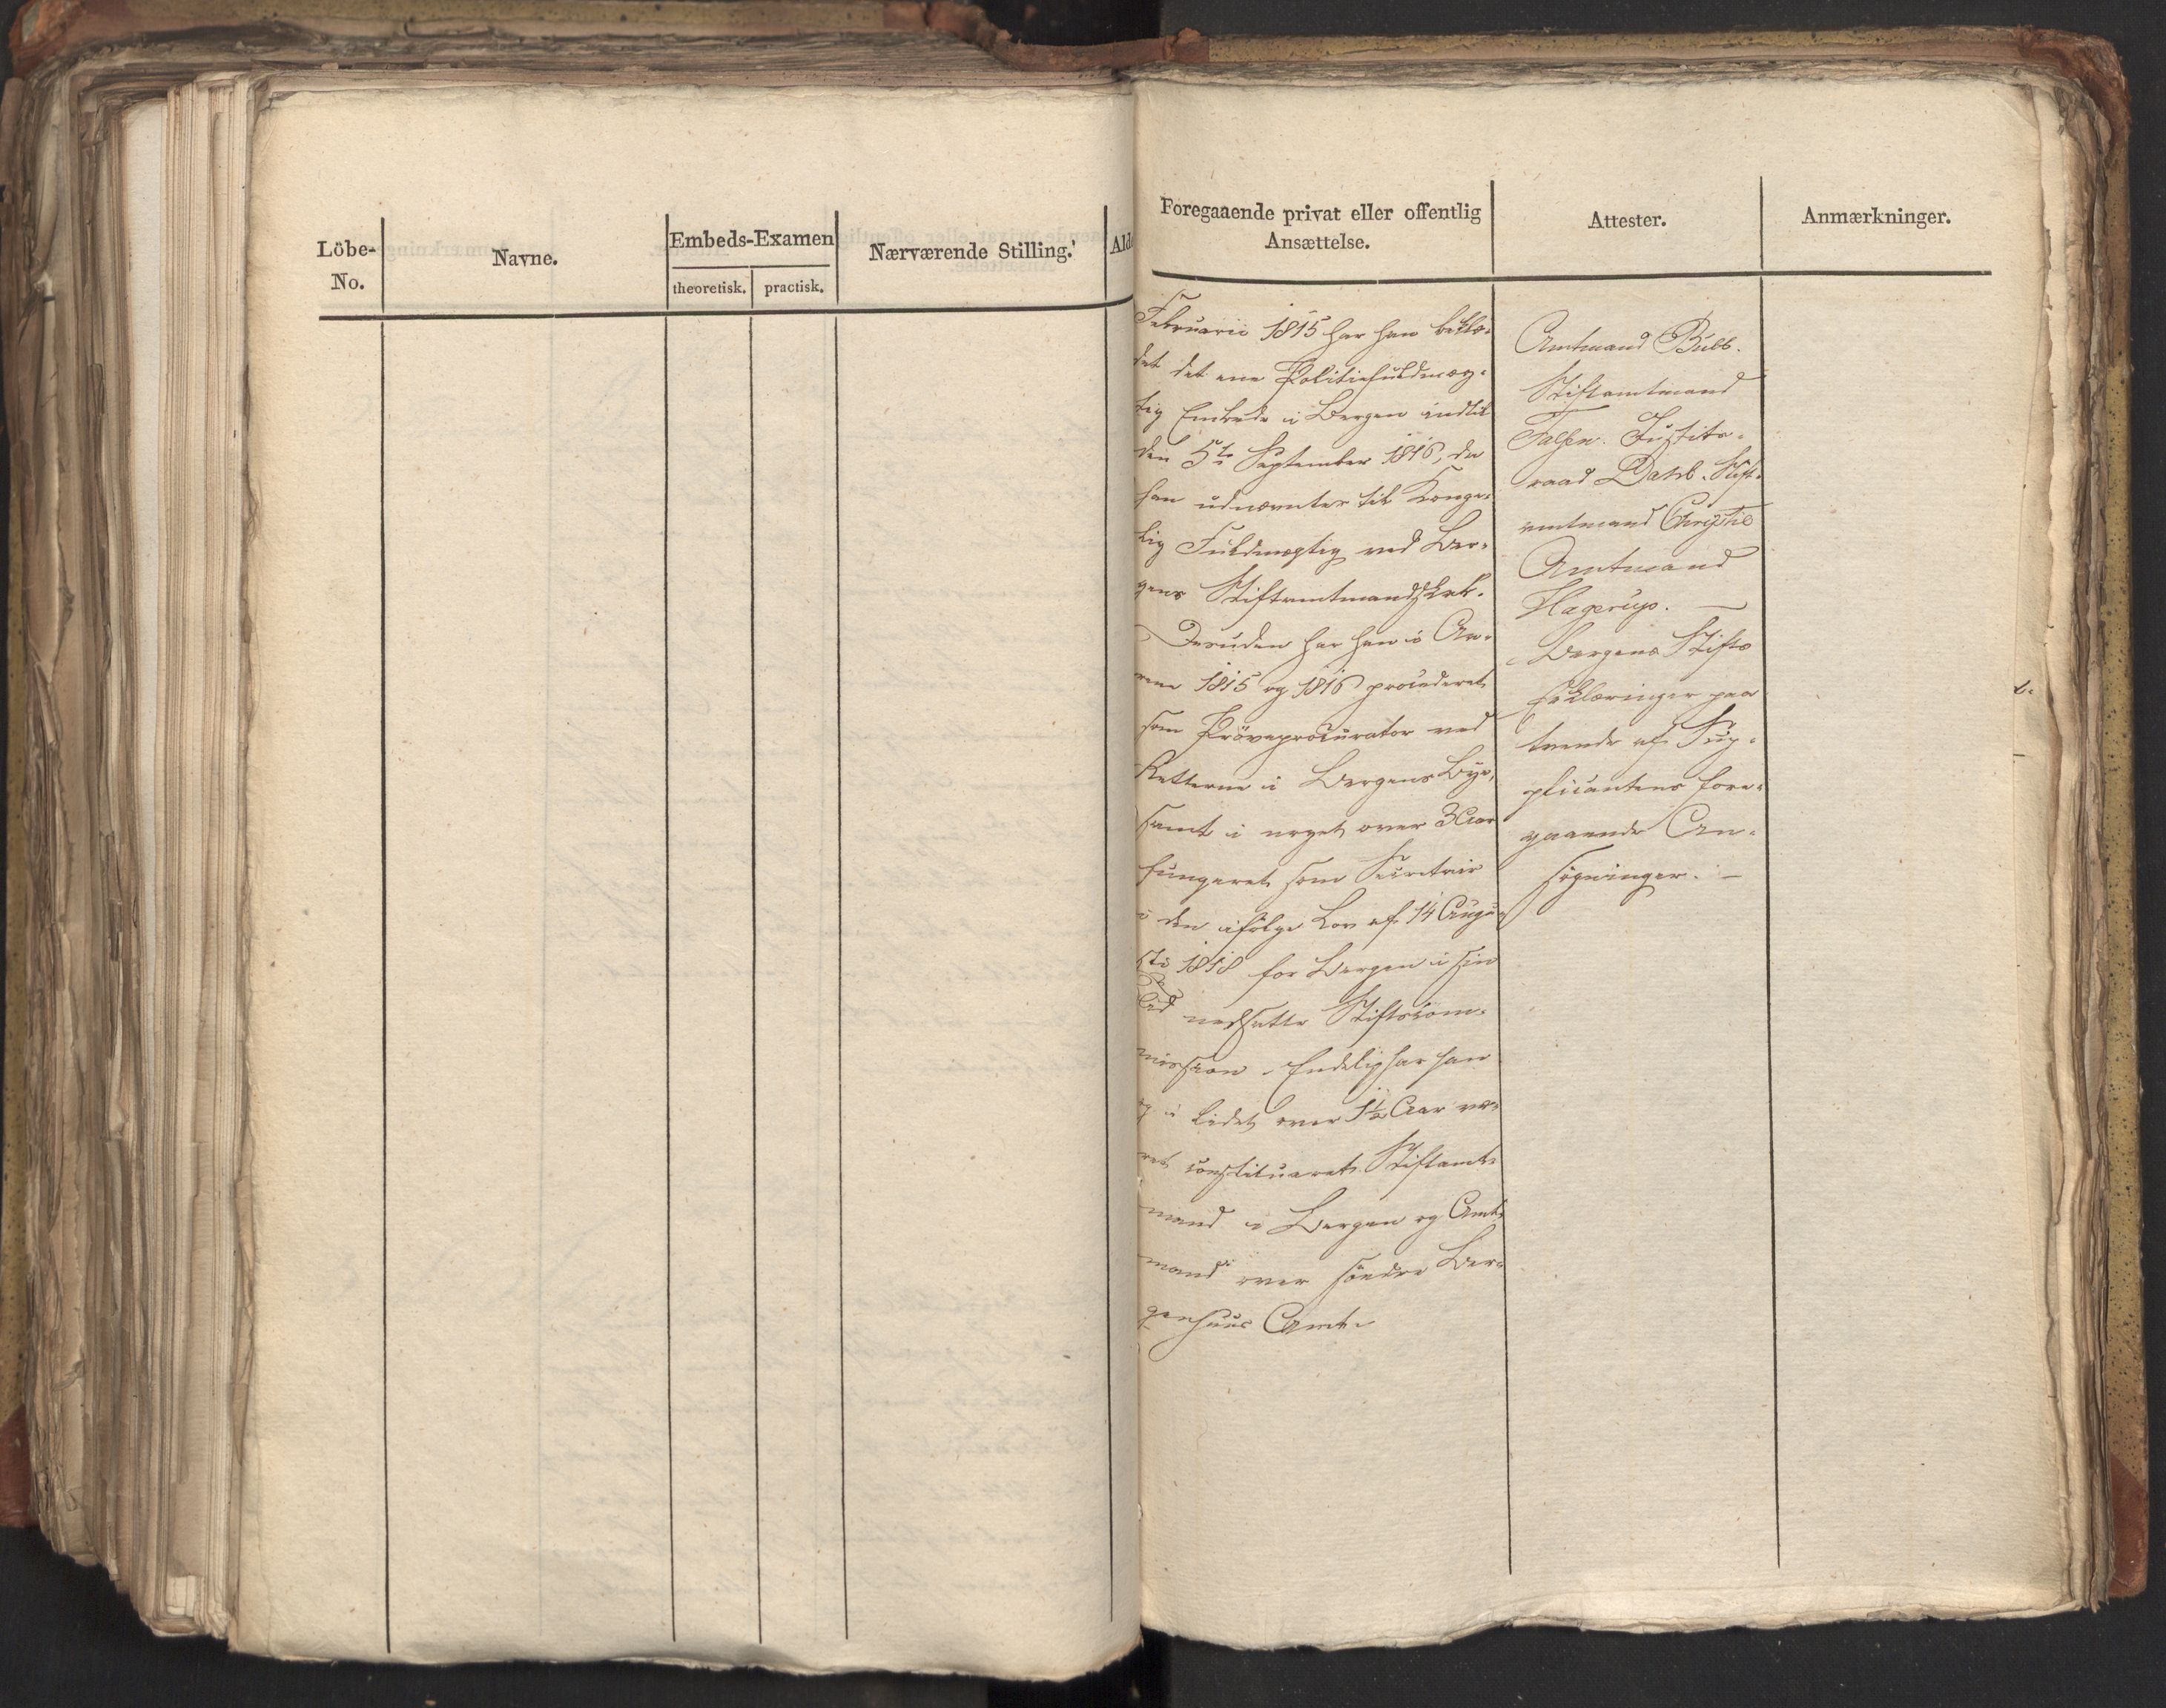 Löbe-
No.
Navne.
Embeds-Examen
theoretisk.
practisk.
Nærværende Stilling.
Alde
Foregaaende privat eller offentlig
Ansættelse.
Attester.
Anmærkninger.
Februarii 1815 har han beklæ-
det det ene Politiefuldmæg-
tig Embede i Bergen indtil
den 5te September 1816, da
han udnævntes til Konge-
lig Fuldmægtig ved Ber-
gens Stiftamtmandskab.
Desuden har han i Aa-
rene 1815 og 1816 procederet
som Pröveprocurator ved
Retterne i Bergens Bye,
samt i noget over 3 Aar
fungeret som Secretair
i den ifölge Lov af 14 Augu-
sti 1818 for Bergen i sin
Tid nedsatte Stiftscom-
mission. Endelig har han
og i lidet over 1½ Aar væ-
ret constitueret Stiftamt-
mand i Bergen og Amt-
mand over söndre Ber-
genhuus Amt.
Amtmand Bull.
Stiftamtmand
Falsen. Justits-
raad Dahl. Stift-
amtmand Christie
Amtmand
Hagerup. —
Bergens Stifts
Erklæringer paa
tvende af Sup-
plicantens fore-
gaaende An-
sögninger. —